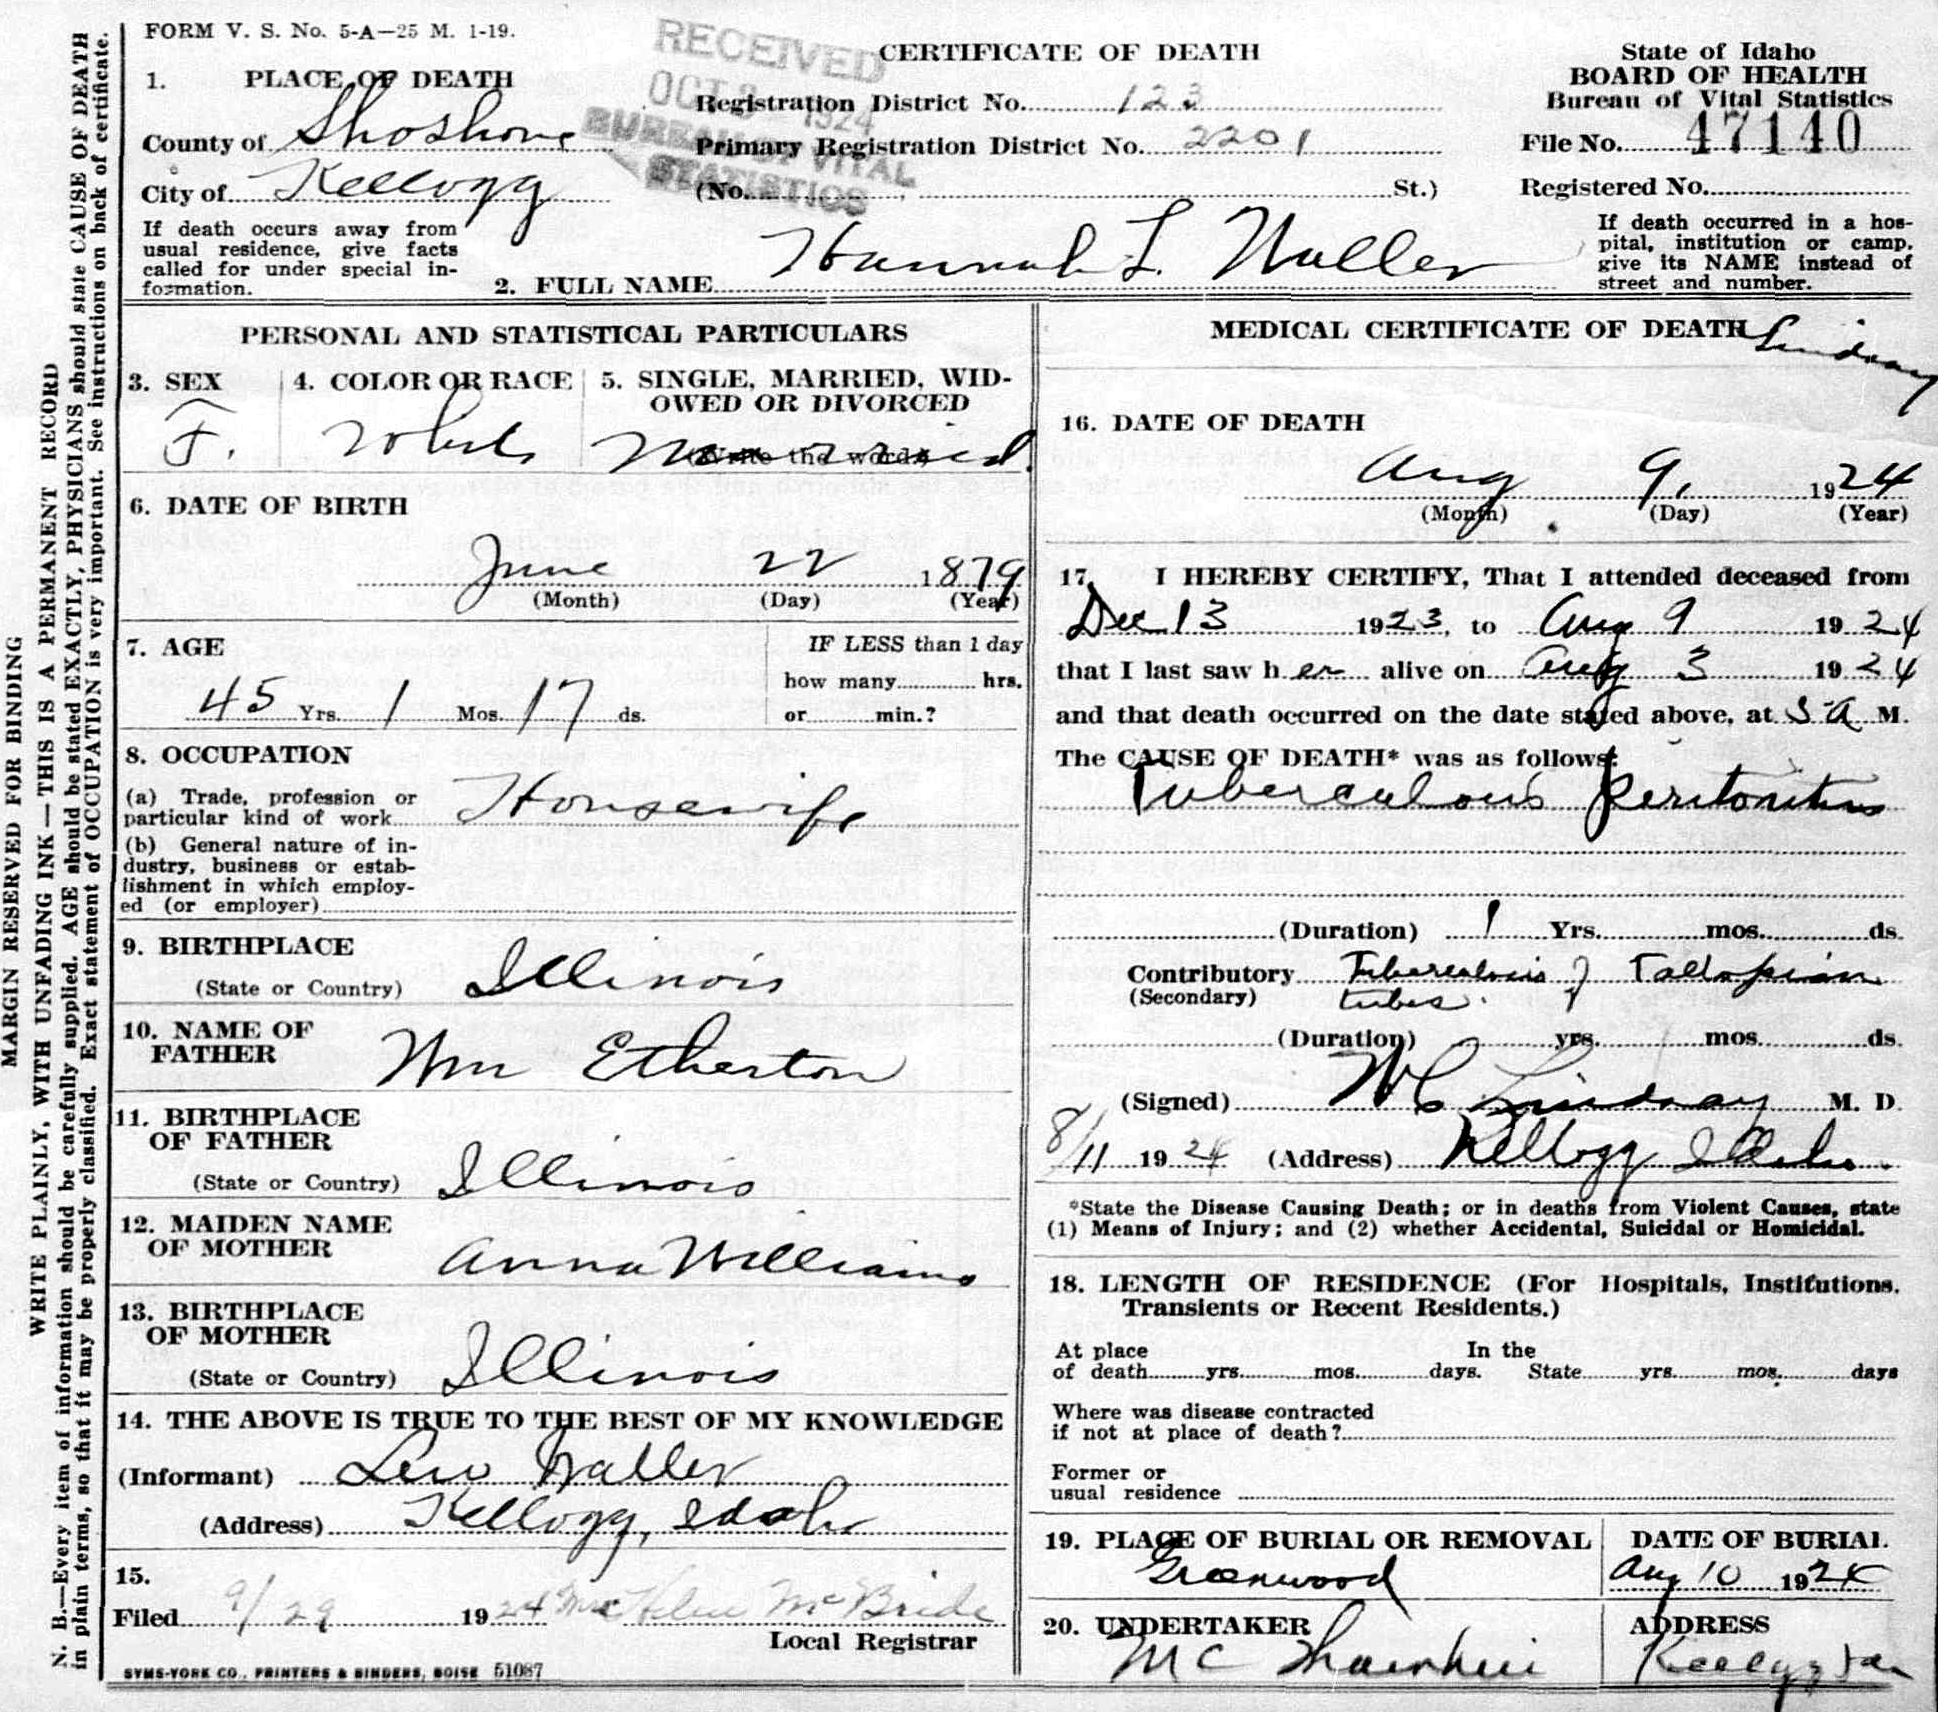 FORM V. S. No. 5-A—25 M. 1-19.
RECEIVED
OCT 3 1924
BUREAU OF VITAL
STATISTICS
CERTIFICATE OF DEATH
State of Idaho
BOARD OF HEALTH
Bureau of Vital Statistics
File No. 47140
Registered No.
1. PLACE OF DEATH
County of Shoshone
City of Kellogg
Registration District No. 123
Primary Registration District No. 2201
(No. , St.)
If death occurs away from
usual residence, give facts
called for under special in-
formation.
2. FULL NAME Hannah L. Waller
If death occurred in a hos-
pital, institution or camp,
give its NAME instead of
street and number.
PERSONAL AND STATISTICAL PARTICULARS
3. SEX
F.
4. COLOR OR RACE
White
5. SINGLE, MARRIED, WID-
OWED OR DIVORCED
Married.
(Write the word)
6. DATE OF BIRTH
June 22 1879
(Month) (Day) (Year)
7. AGE
45 Yrs. 1 Mos. 17 ds.
IF LESS than 1 day
how many hrs.
or min.?
8. OCCUPATION
(a) Trade, profession or
particular kind of work Housewife
(b) General nature of in-
dustry, business or estab-
lishment in which employ-
ed (or employer)
9. BIRTHPLACE
(State or Country) Illinois
10. NAME OF
FATHER Wm Etherton
11. BIRTHPLACE
OF FATHER
(State or Country) Illinois
12. MAIDEN NAME
OF MOTHER Anna Williams
13. BIRTHPLACE
OF MOTHER
(State or Country) Illinois
14. THE ABOVE IS TRUE TO THE BEST OF MY KNOWLEDGE
(Informant) Lew Waller
(Address) Kellogg, Idaho
15.
Filed 9/29 1924 Mrs Helen McBride
Local Registrar
SYMS-YORK CO., PRINTERS & BINDERS, BOISE 51087
MEDICAL CERTIFICATE OF DEATH Lindsay
16. DATE OF DEATH
Aug 9, 1924
(Month) (Day) (Year)
17. I HEREBY CERTIFY, That I attended deceased from
Dec 13 1923, to Aug 9 1924
that I last saw her alive on Aug 3 1924
and that death occurred on the date stated above, at 5 A M.
The CAUSE OF DEATH* was as follows:
Tuberculous peritonitis
(Duration) 1 Yrs. mos. ds.
Contributory Tuberculosis of Fallopian
(Secondary) tubes.
(Duration) yrs. mos. ds.
(Signed) W C Lindsay M. D.
8/11 1924 (Address) Kellogg Idaho.
*State the Disease Causing Death; or in deaths from Violent Causes, state
(1) Means of Injury; and (2) whether Accidental, Suicidal or Homicidal.
18. LENGTH OF RESIDENCE (For Hospitals, Institutions,
Transients or Recent Residents.)
At place In the
of death yrs. mos. days. State yrs. mos. days
Where was disease contracted
if not at place of death?
Former or
usual residence
19. PLACE OF BURIAL OR REMOVAL
Greenwood
DATE OF BURIAL
Aug 10 1924
20. UNDERTAKER
ADDRESS
MARGIN RESERVED FOR BINDING
WRITE PLAINLY, WITH UNFADING INK—THIS IS A PERMANENT RECORD
N. B.—Every item of information should be carefully supplied. AGE should be stated EXACTLY, PHYSICIANS should state CAUSE OF DEATH
in plain terms, so that it may be properly classified. Exact statement of OCCUPATION is very important. See instructions on back of certificate.